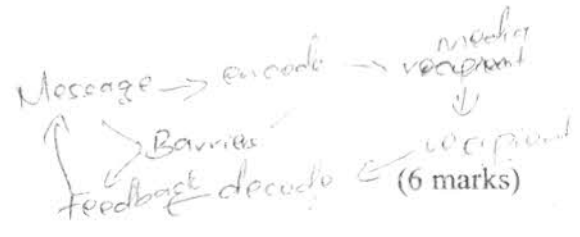 media
Message → encode → recipient
Barries
recipient
Feedback decode
(6 marks)